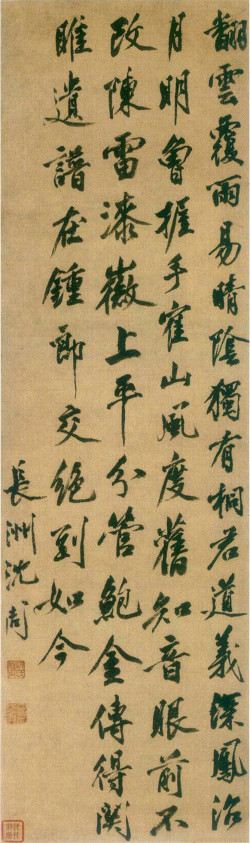 翻雲覆雨易晴陰獨有桐君道義深鳳沼
月明曾握手寉山風度舊知音眼前不
改陳雷漆徽上平分管鮑金傳得関
睢遺譜在鍾郎交絶到如今
長洲沈周